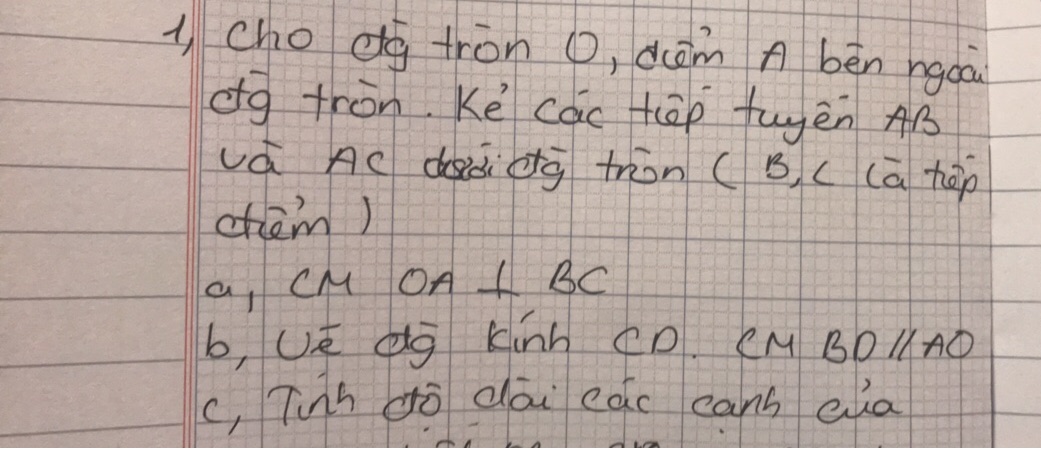 1, Cho đg tròn O, điểm A bên ngoài
đg tròn. Kẻ các tiếp tuyến AB
và AC đg tròn ( B, C là tiếp
điểm )
a, CM OA ⊥ BC
b, Vẽ đg kính CD. CM BD // AO
c, Tính độ dài các cạnh của